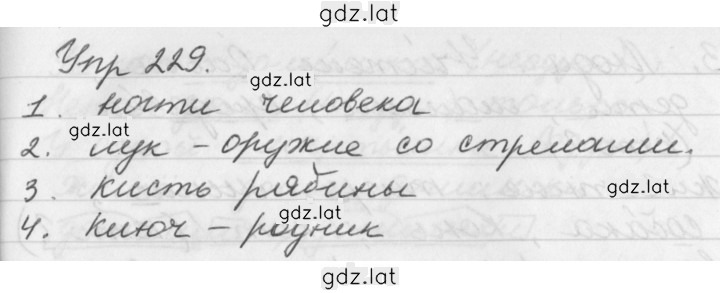 gdz.lat
Упр 229.
gdz.lat
1. ногти человека
gdz.lat
2. лук – оружие со стрелами.
3. кисть рябины
gdz.lat
gdz.lat
4. ключ – родник
gdz.lat